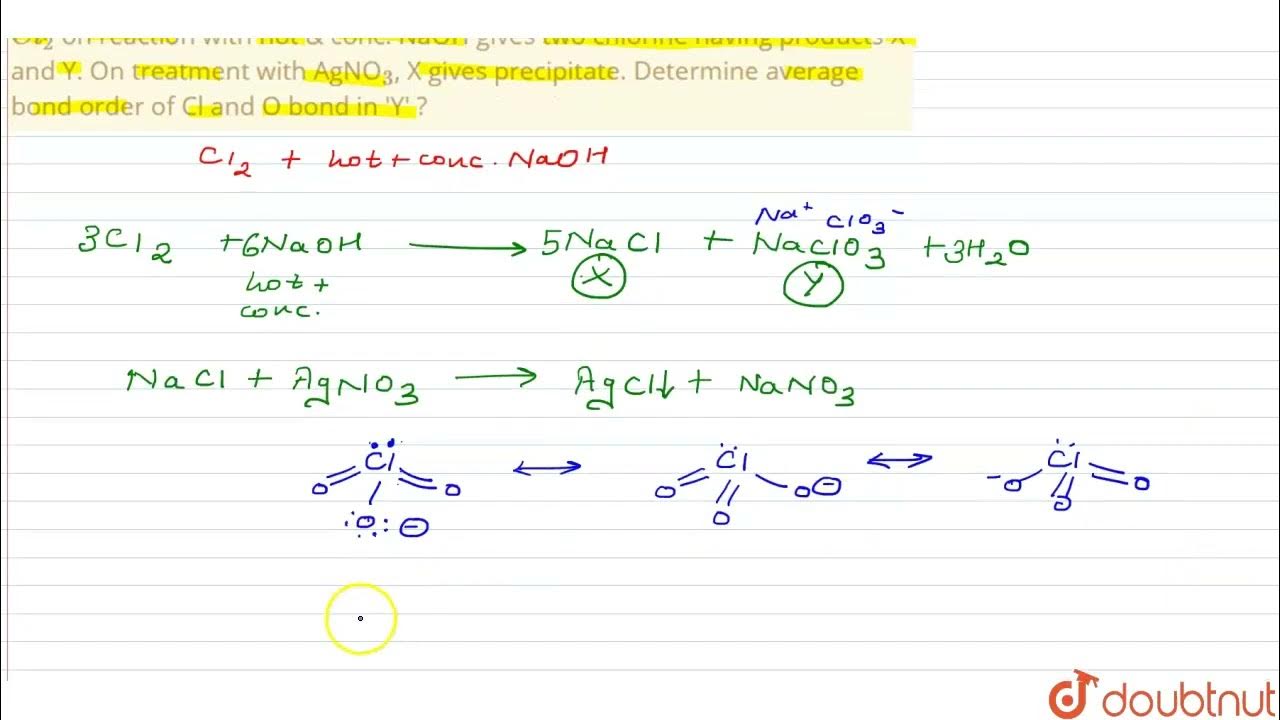 Cl₂ on reaction with hot & conc. NaOH gives two chlorine having products X
and Y. On treatment with AgNO₃, X gives precipitate. Determine average
bond order of Cl and O bond in 'Y' ?
Cl₂ + hot + conc. NaOH
Na⁺ ClO₃⁻
3Cl₂ + 6NaOH → 5NaCl + NaClO₃ + 3H₂O
hot + X Y
conc.
NaCl + AgNO₃ → AgCl↓ + NaNO₃
Cl ↔ Cl ↔ Cl
O O O O ⊖ -O O O
:O: ⊖ O
doubtnut